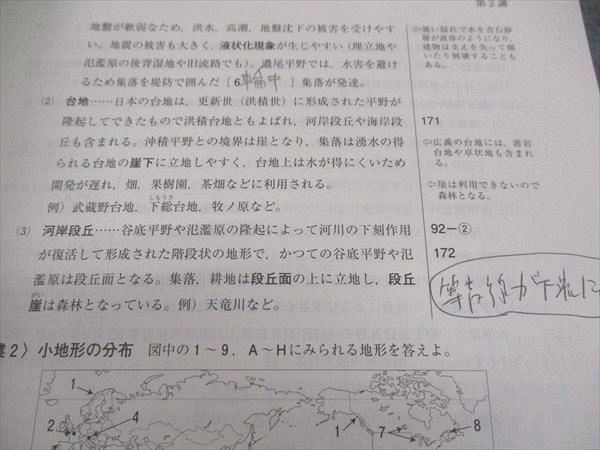 第2講
地盤が軟弱なため，洪水，高潮，地盤沈下の被害を受けやす
い。地震の被害も大きく，液状化現象が生じやすい（埋立地や
氾濫原の後背湿地や旧流路でも）。濃尾平野では，水害を避け
るため集落を堤防で囲んだ［6.輪中］集落が発達。
⇦強い揺れで水を含む砂
層が液体のようになり，
建物は支えを失って傾
いたり倒壊することも
ある。
(2) 台地……日本の台地は，更新世（洪積世）に形成された平野が
隆起してできたもので洪積台地ともよばれ，河岸段丘や海岸段
丘も含まれる。沖積平野との境界は崖となり，集落は湧水の得
られる台地の崖下に立地しやすく，台地上は水が得にくいため
開発が遅れ，畑，果樹園，茶畑などに利用される。
例）武蔵野台地，下総台地，牧ノ原など。
しもうさ
171
⇦広義の台地には，溶岩
台地や卓状地も含まれ
る。
⇦崖は利用できないので
森林となる。
(3) 河岸段丘……谷底平野や氾濫原の隆起によって河川の下刻作用
が復活して形成された階段状の地形で，かつての谷底平野や氾
濫原は段丘面となる。集落，耕地は段丘面の上に立地し，段丘
崖は森林となっている。例）天竜川など。
がい
92－②
172
等高線が
業2〉小地形の分布 図中の1～9，A～Hにみられる地形を答えよ。
1
2
4
1
7
8